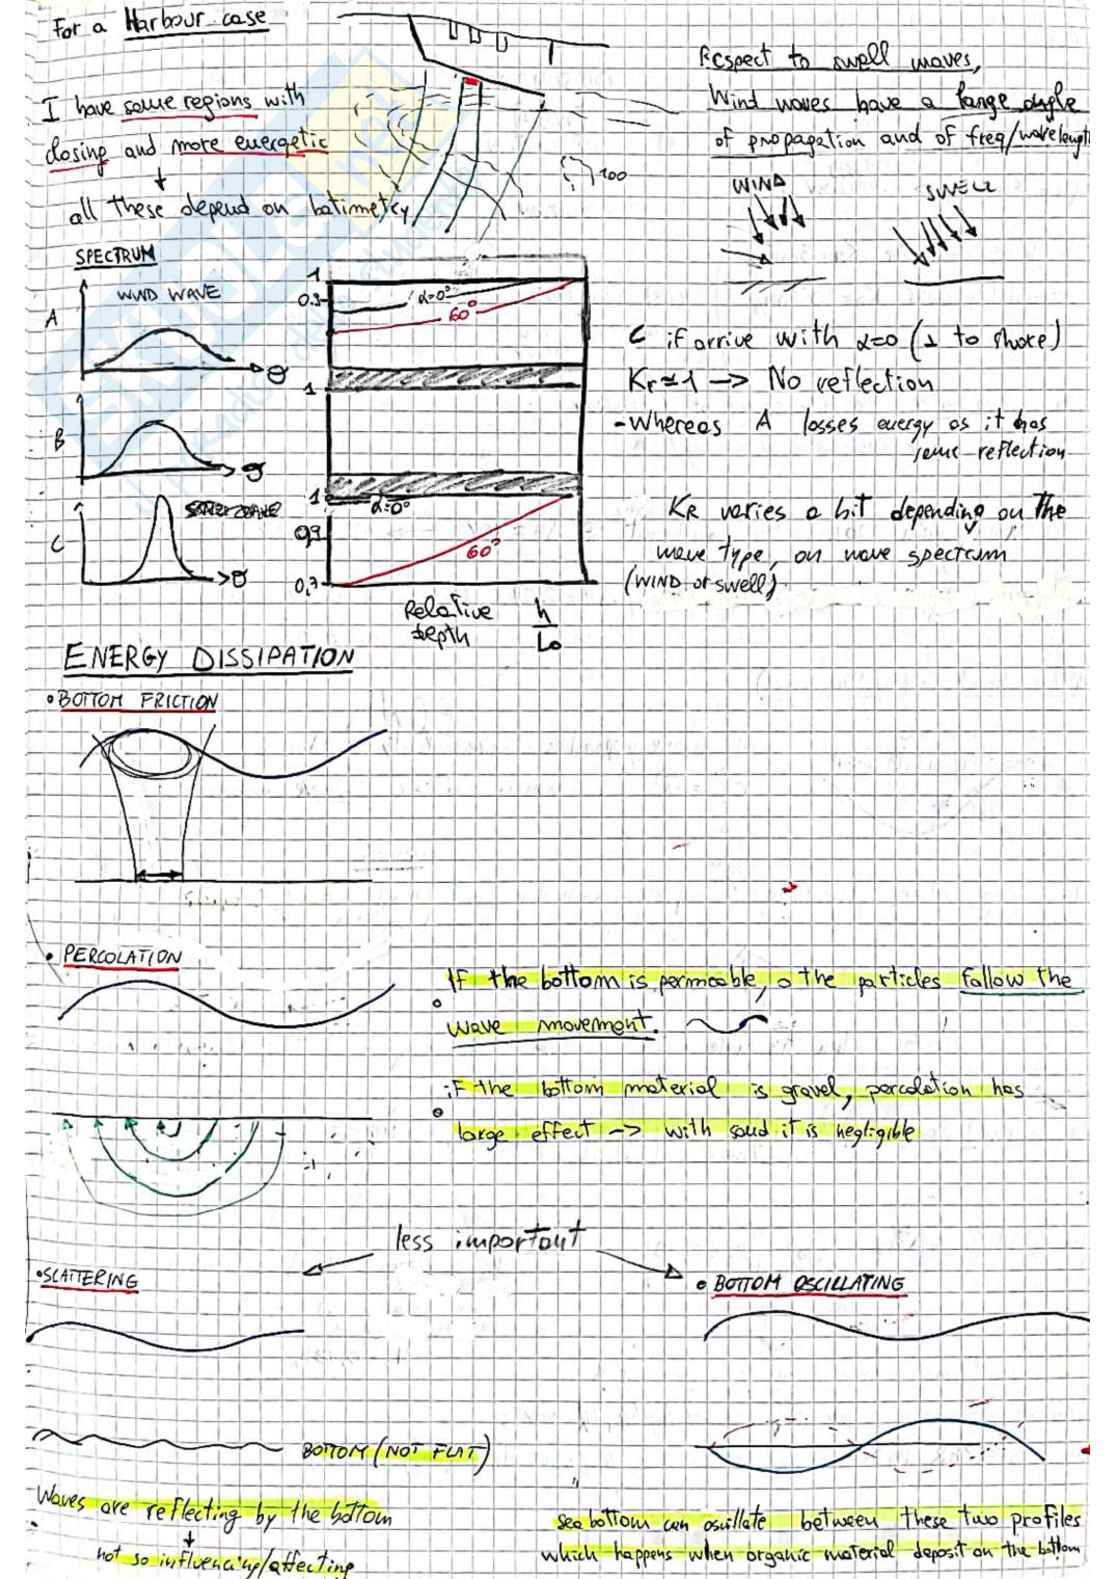 For a Harbour case
I have some regions with
closing and more energetic
all these depend on batimetry
100
Respect to swell waves,
Wind waves have a large angle
of propagation and of freq/wavelength
WIND
SWELL
SPECTRUM
A
WIND WAVE
θ
B
θ
C
θ
1
0.9
α=0°
60°
1
1
α=0°
0,9
60°
0,7
Relative depth h/Lo
C if arrive with α=0 (⊥ to shore)
Kr≃1 → No reflection
- Whereas A losses energy as it has
some reflection
KR varies a bit depending on the
wave type, on wave spectrum
(WIND or swell)
ENERGY DISSIPATION
• BOTTOM FRICTION
• PERCOLATION
If the bottom is permeable, the particles follow the
wave movement.
if the bottom material is gravel, percolation has
large effect → with sand it is negligible
less important
• SCATTERING
• BOTTOM OSCILLATING
BOTTOM (NOT FLAT)
Waves are reflecting by the bottom
not so influencing/affecting
sea bottom can oscillate between these two profiles
which happens when organic material deposit on the bottom